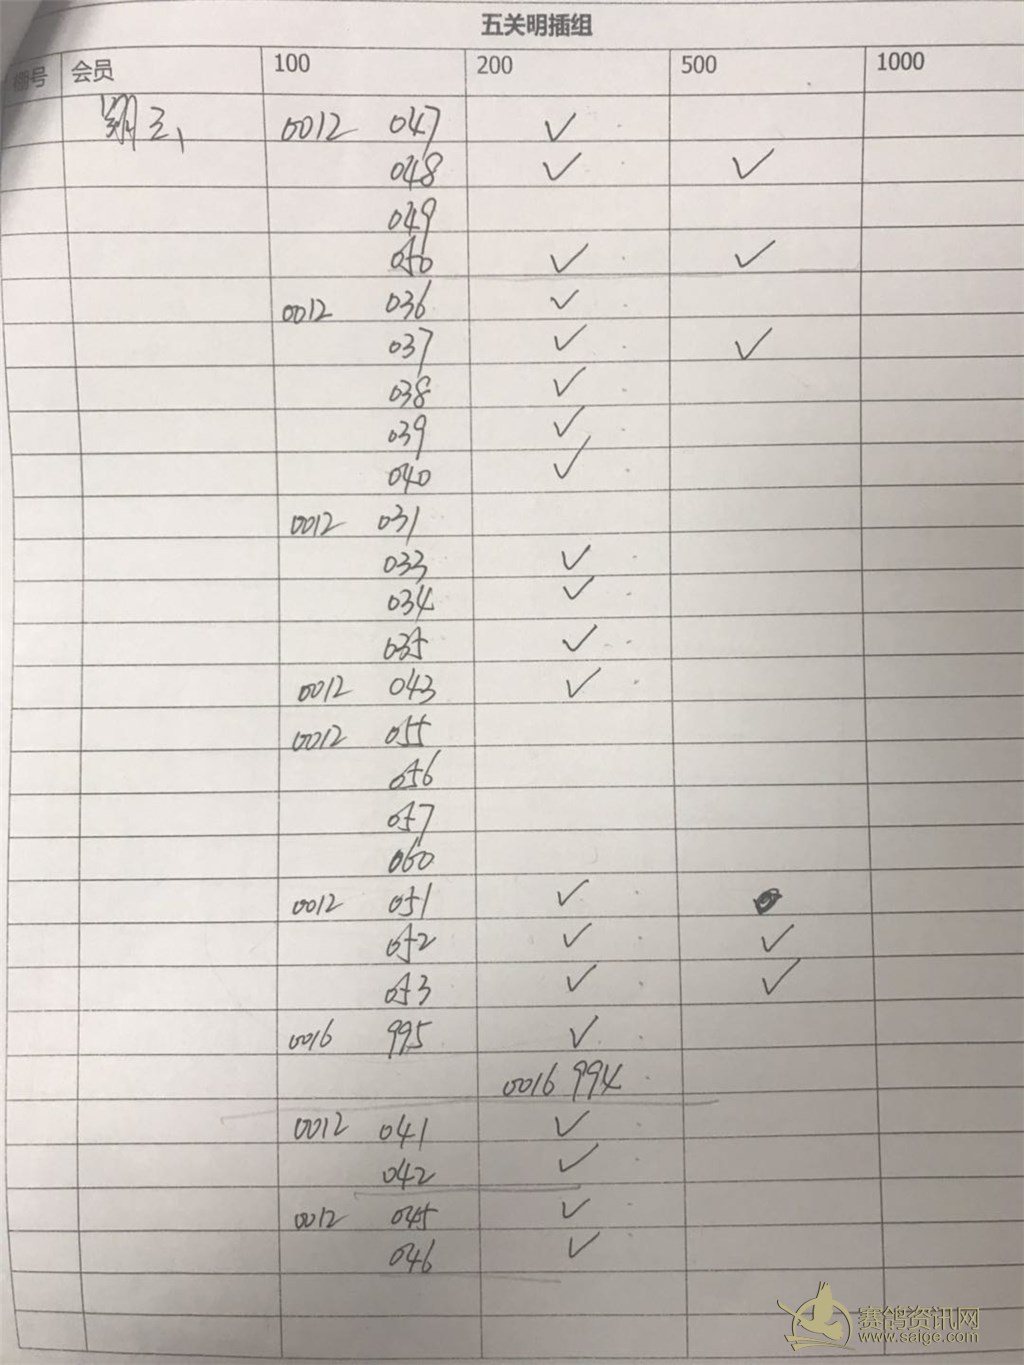 五关明插组
棚号 会员 100 200 500 1000
翔 0012 047 ✓
048 ✓ ✓
049
050 ✓ ✓
0012 036 ✓
037 ✓ ✓
038 ✓
039 ✓
040 ✓
0012 031
033 ✓
034 ✓
035 ✓
0012 043 ✓
0012 055
056
057
060
0012 051 ✓
052 ✓ ✓
053 ✓ ✓
0016 995 ✓
0016 994
0012 041 ✓
042 ✓
0012 045 ✓
046 ✓
赛鸽资讯网
www.saige.com